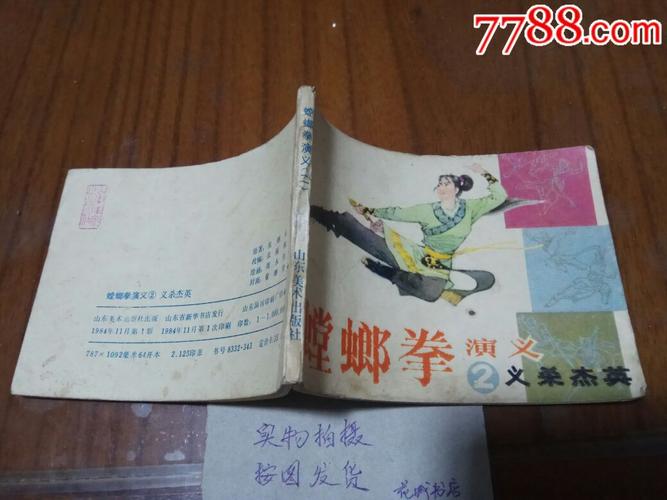 7788.com
螳螂拳演义(二)
山东美术出版社
螳螂拳演义
②义杀杰英
螳螂拳演义② 义杀杰英
山东美术出版社出版 山东省新华书店发行
1984年11月第1版 1984年11月第1次印刷
787×1092毫米64开本 2.125印张 书号8332·343
实物拍摄
按图发货
花城书店